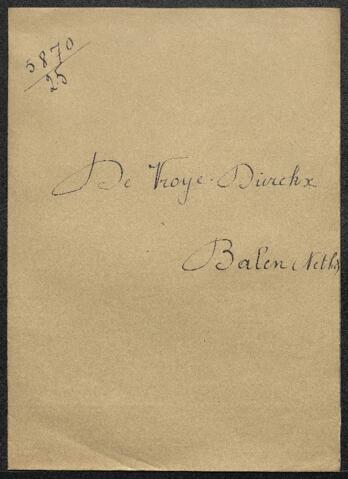 5870/25
De Vroye-Dierckx
Balen (Neth)